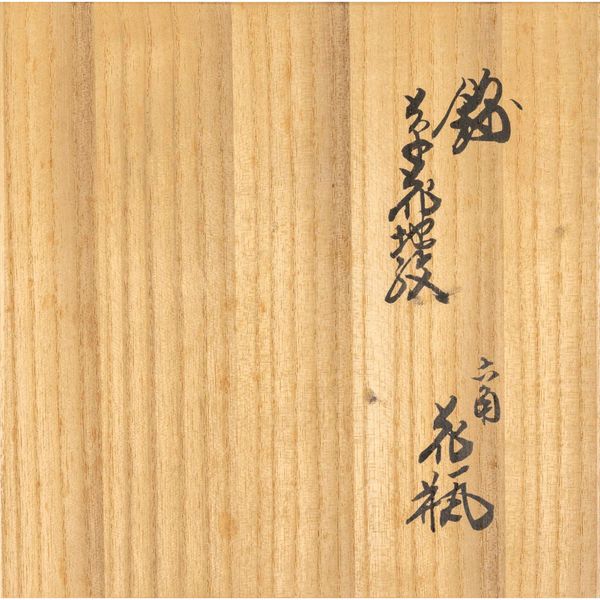 草花地紋
六角
花瓶